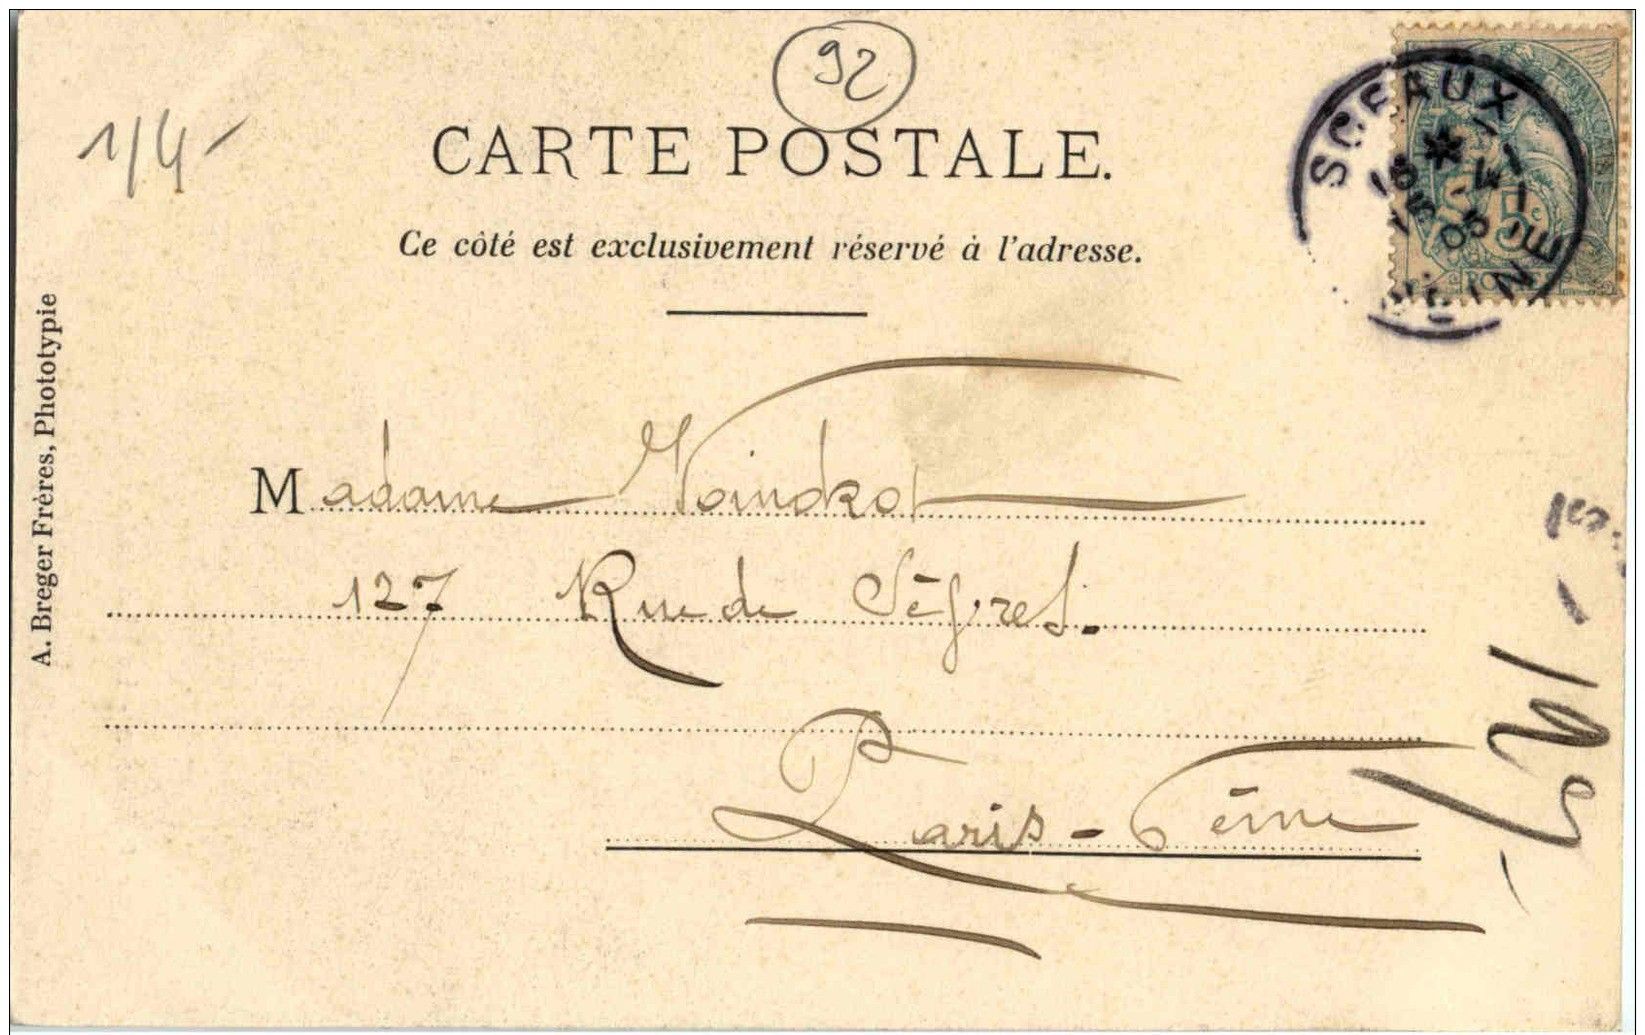 92
1/4
CARTE POSTALE.
Ce côté est exclusivement réservé à l'adresse.
SCEAUX
SEINE
05
5c
A. Breger Frères, Phototypie
Madame Voindrot
127 Rue de Sèvres.
Paris - 6ème